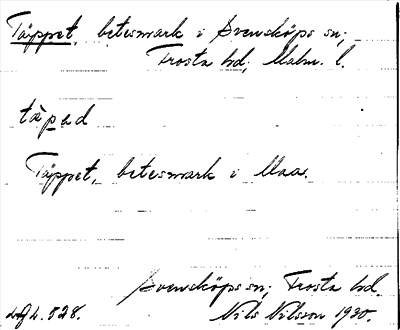 Täppet, betesmark i Svensköps sn;
Frosta hd, Malm. l.
täpəd
Täppet, betesmark i Maa.
Svensköps sn; Frosta hd.
Nils Nilsson 1930.